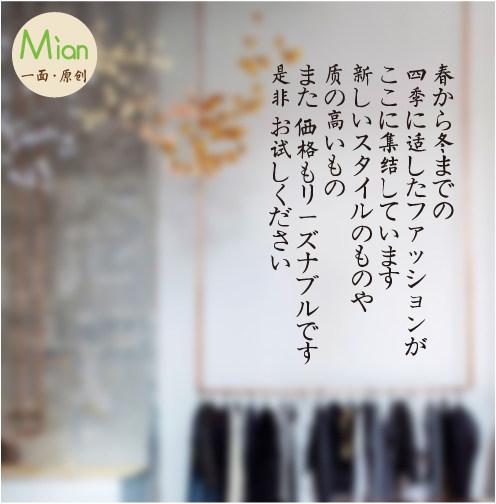 Mian
一面·原创
春から冬までの
四季に适したファッションが
ここに集結しています
新しいスタイルのものや
质の高いもの
また 価格もリーズナブルです
是非 お試しください